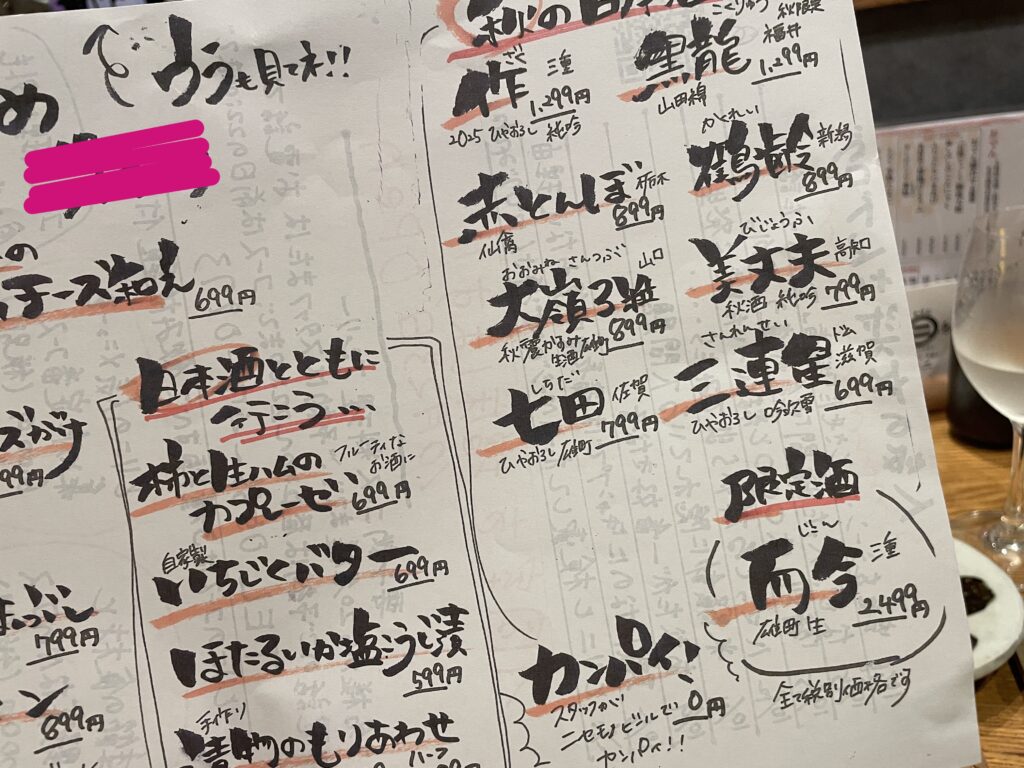 うらも見てネ!!
め
の
チーズ和え 699円
ズがけ
99円
まぶし
799円
ン
899円
日本酒とともに
行こう…
柿と生ハムの
カプレーゼ 699円
フルーティな
お酒に
自家製
いちじくバター 699円
ほたるいか塩こうじ漬
599円
手作り
漬物のもりあわせ
ハーフ
秋の日本酒
ざく
作 三重
1,299円
2025 ひやおろし 純吟
こくりゅう 秋限定
黒龍 福井
1,299円
山田錦
赤とんぼ 栃木
899円
仙禽
かくれい
鶴齢 新潟
899円
おおみね さんつぶ
大嶺3粒 山口
899円
秋霞かすみ
生酒 雄町
びじょうふ
美丈夫 高知
799円
秋酒 純吟
しちだ
七田 佐賀
799円
ひやおろし 雄町
さんれんせい
三連星 滋賀
699円
ひやおろし 吟吹雪
限定酒
じこん
而今 三重
2,499円
雄町 生
全て税別価格です
カンパイ!
スタッフが
ニセモノビールで 0円
カンパイ!!